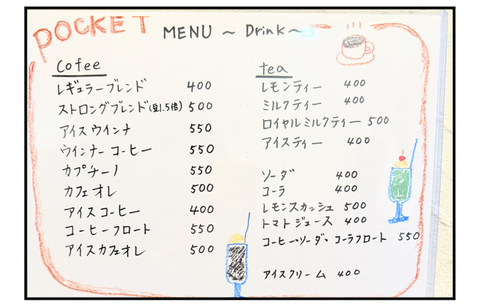 POCKET
MENU ～ Drink～
Cofee
レギュラーブレンド 400
ストロングブレンド(豆1.5倍) 500
アイスウインナ 550
ウインナーコーヒー 550
カプチーノ 550
カフェオレ 500
アイスコーヒー 400
コーヒーフロート 550
アイスカフェオレ 500
tea
レモンティー 400
ミルクティー 400
ロイヤルミルクティー 500
アイスティー 400
ソーダ 400
コーラ 400
レモンスカッシュ 500
トマトジュース 400
コーヒー・ソーダ・コーラフロート 550
アイスクリーム 400